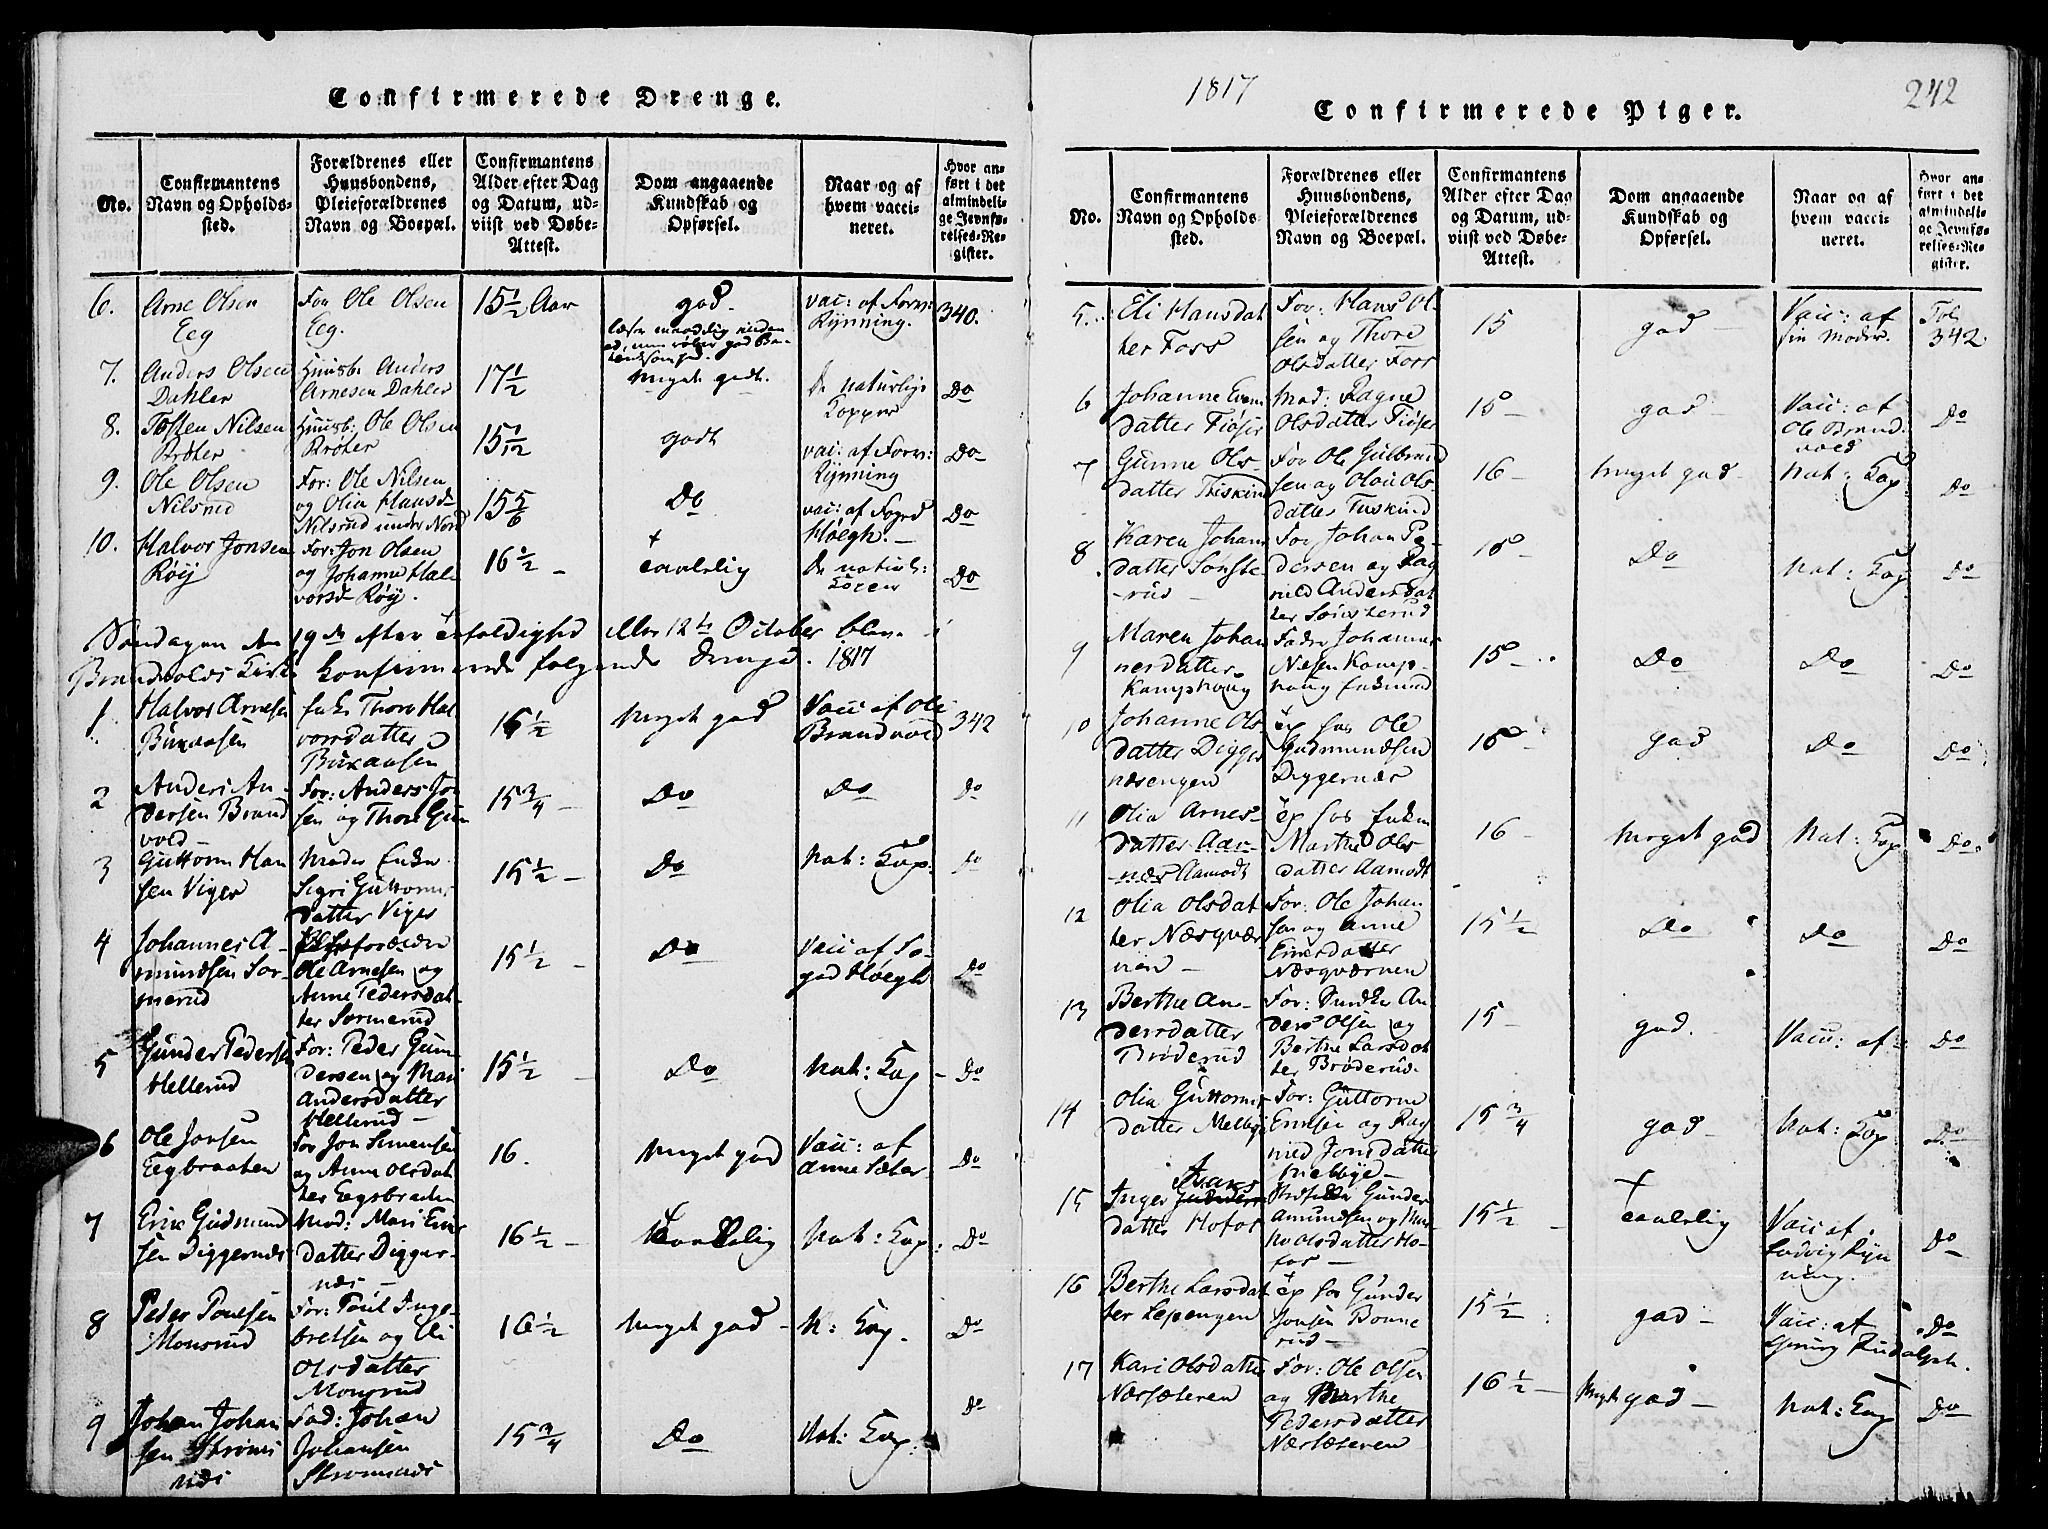 Confirmerede Drenge.
No.
Confirmantens
Navn og Opholds-
sted.
Forældrenes eller
Huusbondens,
Pleieforældrenes
Navn og Boepæl.
Confirmantens
Alder efter Dag
og Datum, ud-
viist ved Døbe-
Attest.
Dom angaaende
Kundskab og
Opførsel.
Naar og af
hvem vacci-
neret.
Hvor an-
ført i det
almindeli-
ge Jevnfø-
relses-Re-
gister.
6.
Arne Olsen
Eeg
Ole Olsen
Eeg.
15 1/2 Aar
god.
vac: af Forv:
Rynning.
340.
7.
Anders Olsen
Dahler
Huusb: Anders
Arnesen Dahler
17 1/2
meget godt.
De naturlige
Kopper
Do
8.
Tosten Nilsen
Brøter
Huusb: Ole Olsen
Brøter
15 1/12
godt
vac: af Forv:
Rynning
Do
9.
Ole Olsen
Nilsrud
For: Ole Nilsen
og Olia Hansd
Nilsrud under Nord
15 5/6
Do
vac: af Foged
Høegh.
Do
10.
Halvor Jonsen
Røij
For: Jon Olsen
og Johanne Hal
vorsd Røij.
16 1/2 -
+
taalelig
De naturl:
Do
Søndagen den 19de efter Trefoldighed eller 12te October blev i
Brandvolds Kirke konfirmerede følgende Drenge. 1817
1.
Halvor Arnesen
Buraasen
Enke Thore Hal
vorsdatter
Buraasen
16 1/2
Meget god
Vacc af Ole
Brandvold
342
2
Anders An-
dersen Brand
vold
For: Anders Jon
sen og Thore Gun
15 3/4 -
Do
Do
Do
3
Guttorm Han
sen Viger
Moder Enke
Sigri Guttorms
datter Viger
15 1/2 -
Do
Nat: Kop:
Do
4
Johannes A-
mundsen Sor-
merud
Pleieforældre
Ole Arnesen og
Anne Pedersdat-
ter Sormerud
15 1/2 -
Do
Vacc af Fo-
ged Høegh
Do
5
Gunder Pedersen
Hellerud
For: Peder Gun
dersen og Mari
Andersdatter
Hellerud -
15 1/2 -
Do
Nat: Kop -
Do
6
Ole Jonsen
Eegbraaten
For Jon Simensen
og Anne Olsdat
ter Eegsbraaten
16.
Meget god
Vacc: af
Anne Sæter
Do
7
Eric Gudmund
sen Diggernæs
Mod: Mari Eric
datter Digger-
næs -
16 1/2 -
+
taalelig
Nat: Kop:
Do
8
Peder Poulsen
Monsrud
For: Poul Inge-
bretsen og Eli
Olsdatter
Monsrud
16 1/2
Meget god -
N: Kop.
Do
9
Johan Johan
sen Strøms
næs
Fad: Johan
Johansen
Strømsnæs
15 3/4
Do
Nat: Kop:
Do
1817
242
Confirmerede Piger.
No.
Confirmantens
Navn og Opholds-
sted.
Forældrenes eller
Huusbondens,
Pleieforældrenes
Navn og Boepæl.
Confirmantens
Alder efter Dag
og Datum, ud-
viist ved Døbe-
Attest.
Dom angaaende
Kundskab og
Opførsel.
Naar og af
hvem vacci-
neret.
Hvor an-
ført i det
almindeli-
ge Jevnfø-
relses-Re-
gister.
5.
Eli Hansdat
ter Foss
For: Hans Ol-
sen og Thore
Olsdatter Foss
15
god -
Vacc: af
sin Moder.
Fol
342.
6
Johanne Evens
datter Fiøser
Mod: Ragne
Olsdatter Fiøser
15 -
god -
Vacc: af
Ole Brand
vold
Do
7
Gunne Ols-
datter
For Ole Gulbrand
sen og Olou Ols-
datter
16 -
Meget god -
Nat: Kop:
Do
8
Karen Johans
datter Sønste-
rud -
For Johan Pe-
dersen og Rag
nild Andersdat
ter Sønsterud
15 -
Do
Nat: Kop
Do
9
Maren Johan
nesdatter
Kamphoug
Fader Johannes
Nilsen Kamp-
houg Enkmand
15 -
Do
Do
Do
10
Johanne Ols
datter Digger
næsengen
for Ole
Gudmundsen
Diggernæs
15
god
Do
Do
11
Olia Arnes-
datter
Aamodt
Marthe Ols
datter Aamodt
16 -
Meget god
Nat: Kop
Do
12
Olia Olsdat
ter Næsqvær
nen -
For: Ole Johan
sen og Anne
Einersdatter
Næsqværnen
15 1/2
Do
Do
Do
13
Berthe An-
dersdatter
Brøderud
For: Snedker An
ders Olsen og
Berthe Larsdat
ter Brøderud
15 -
god.
Vacc: af
Do
14
Olia Guttorms
datter Melbye
For: Guttorm
Ericsen og Rag
nild Jonsdatter
Melbye -
15 3/4
god -
Nat: Kop
Do
15
Inger
datter Hofos
Gunder
Amundsen og
Olsdatter Ho-
fos -
15 1/2 -
+
taalelig
Vacc af
Ludvig Ryn
ning.
Do
16
Berthe Larsdat
ter Lepengen
for Gunder
Jonsen Bonne
rud -
15 1/2
god -
Vacc: af
Rudolph.
Do
17
Kari Olsdatter
Næssæteren
For: Ole Olsen
og Berthe
Pedersdatter
Næssæteren
16 1/2 -
Meget god -
Nat: Kop
Do